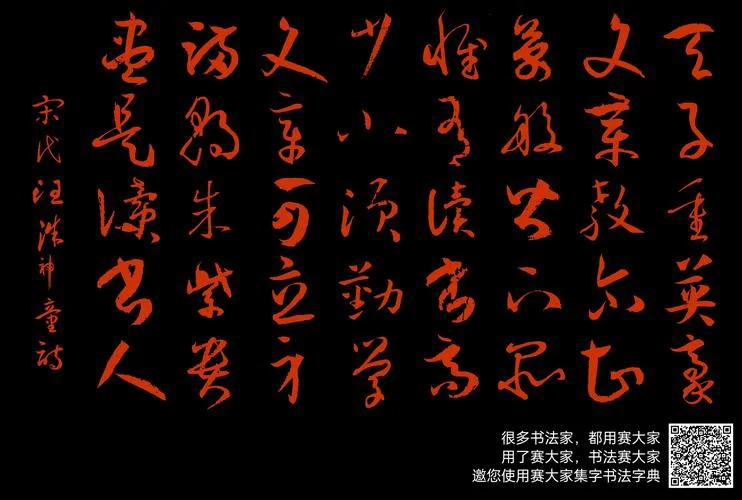 天子重英豪
文章教尔曹
萬般皆下品
惟有讀書高
少小須勤學
文章可立身
滿朝朱紫貴
盡是讀書人
宋代汪洙神童詩
很多书法家，都用赛大家
用了赛大家，书法赛大家
邀您使用赛大家集字书法字典